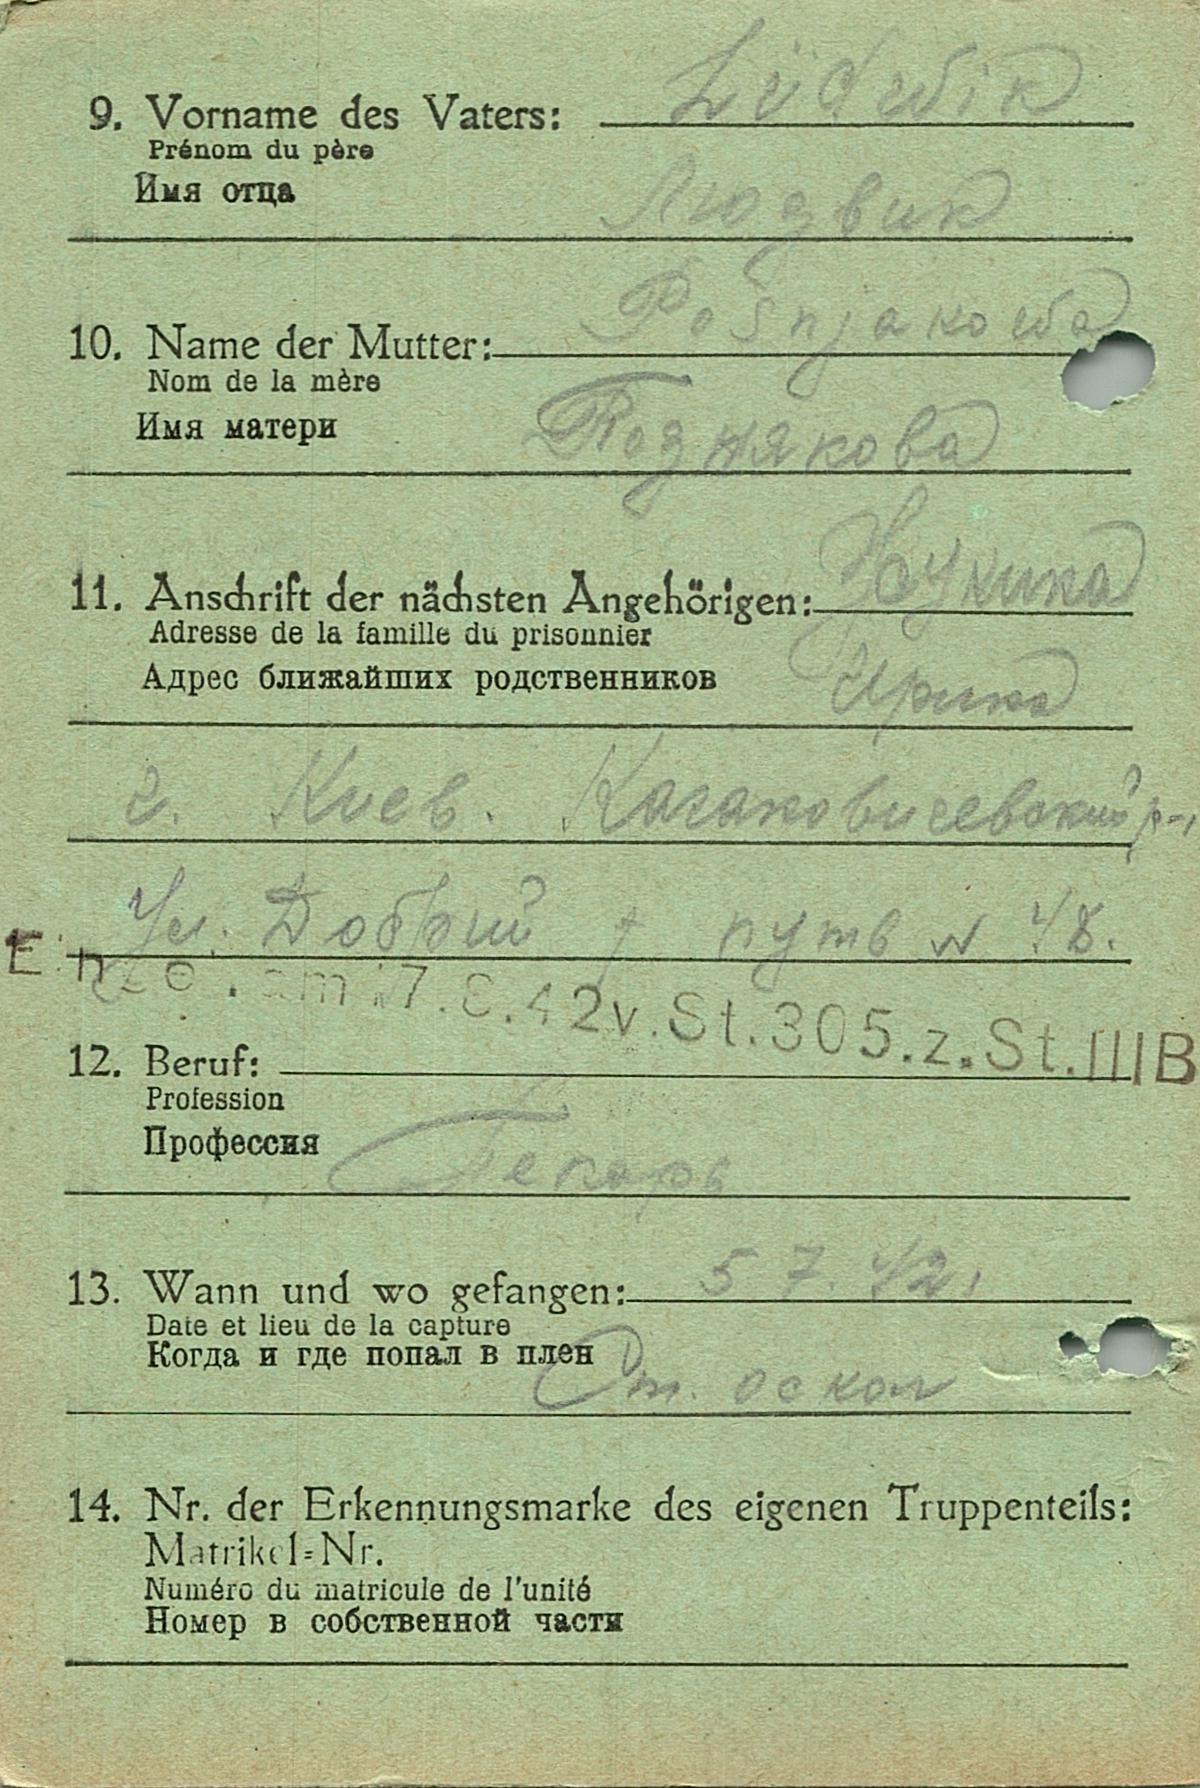 9. Vorname des Vaters: Lüdwik
Prénom du père
Имя отца Людвик
10. Name der Mutter: Posnjakowa
Nom de la mère
Имя матери Познякова
11. Anschrift der nächsten Angehörigen:
Adresse de la famille du prisonnier
Адрес ближайших родственников Ирина
г. Киев. Кагановичевский р-н
Ул. Добрий путь № 48.
am 17.8.42 v. St. 305. z. St. III B
12. Beruf:
Profession
Профессия Пекарь
13. Wann und wo gefangen: 5 7. 42.
Date et lieu de la capture
Когда и где попал в плен Ст. оскол
14. Nr. der Erkennungsmarke des eigenen Truppenteils:
Matrikel=Nr.
Numéro du matricule de l'unité
Номер в собственной части